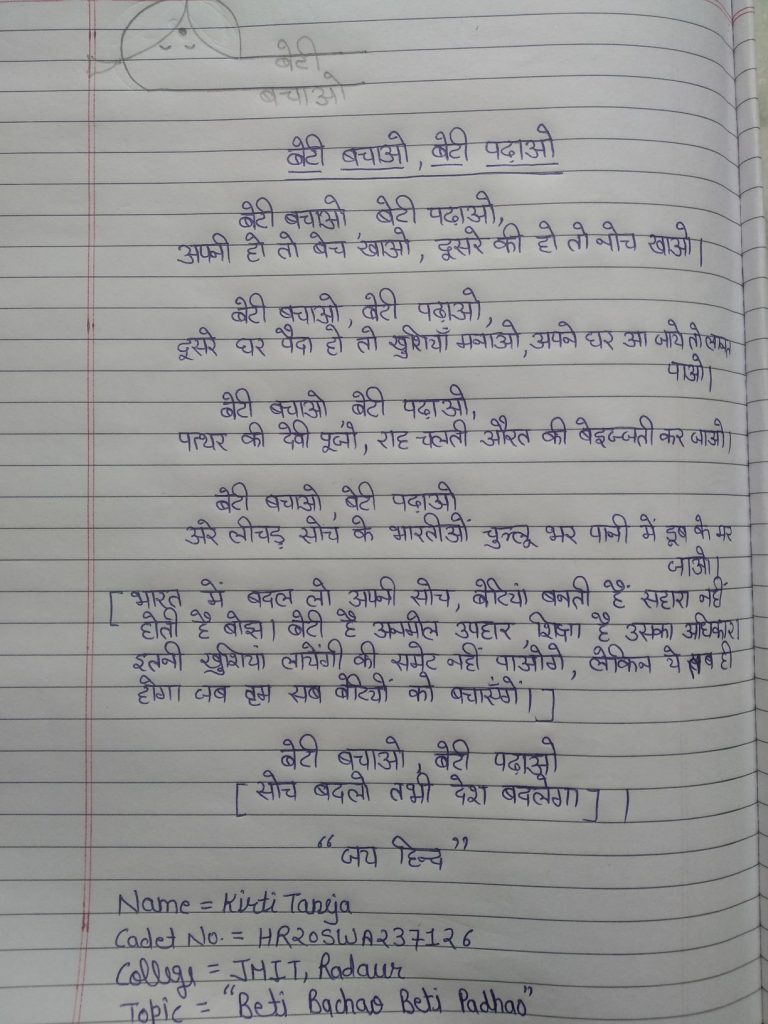 बेटी
बचाओ
बेटी बचाओ, बेटी पढ़ाओ
बेटी बचाओ, बेटी पढ़ाओ,
अपनी हो तो बेच खाओ, दूसरे की हो तो नोच खाओ।
बेटी बचाओ, बेटी पढ़ाओ,
दूसरे घर पैदा हो तो खुशियाँ मनाओ, अपने घर आ जाये तो
पाओ।
बेटी बचाओ बेटी पढ़ाओ,
पत्थर की देवी पूजो, राह चलती औरत की बेइज्जती कर जाओ।
बेटी बचाओ, बेटी पढ़ाओ
अरे लीचड़ सोच के भारतीओं चुल्लू भर पानी में डूब के मर
जाओ।
[भारत में बदल लो अपनी सोच, बेटियां बनती हैं सहारा नहीं
होती है बोझ। बेटी है अनमोल उपहार, शिक्षा है उसका अधिकार।
इतनी खुशियां लायेंगी की समेट नहीं पाओगे, लेकिन ये तब ही
होगा जब तुम सब बेटियों को बचाएँगें।]
बेटी बचाओ, बेटी पढ़ाओ
[सोच बदलो तभी देश बदलेगा]।
“जय हिन्द”
Name = Kirti Taneja
Cadet No. = HR20SWA237126
College = JMIT, Radaur
Topic = "Beti Bachao Beti Padhao"